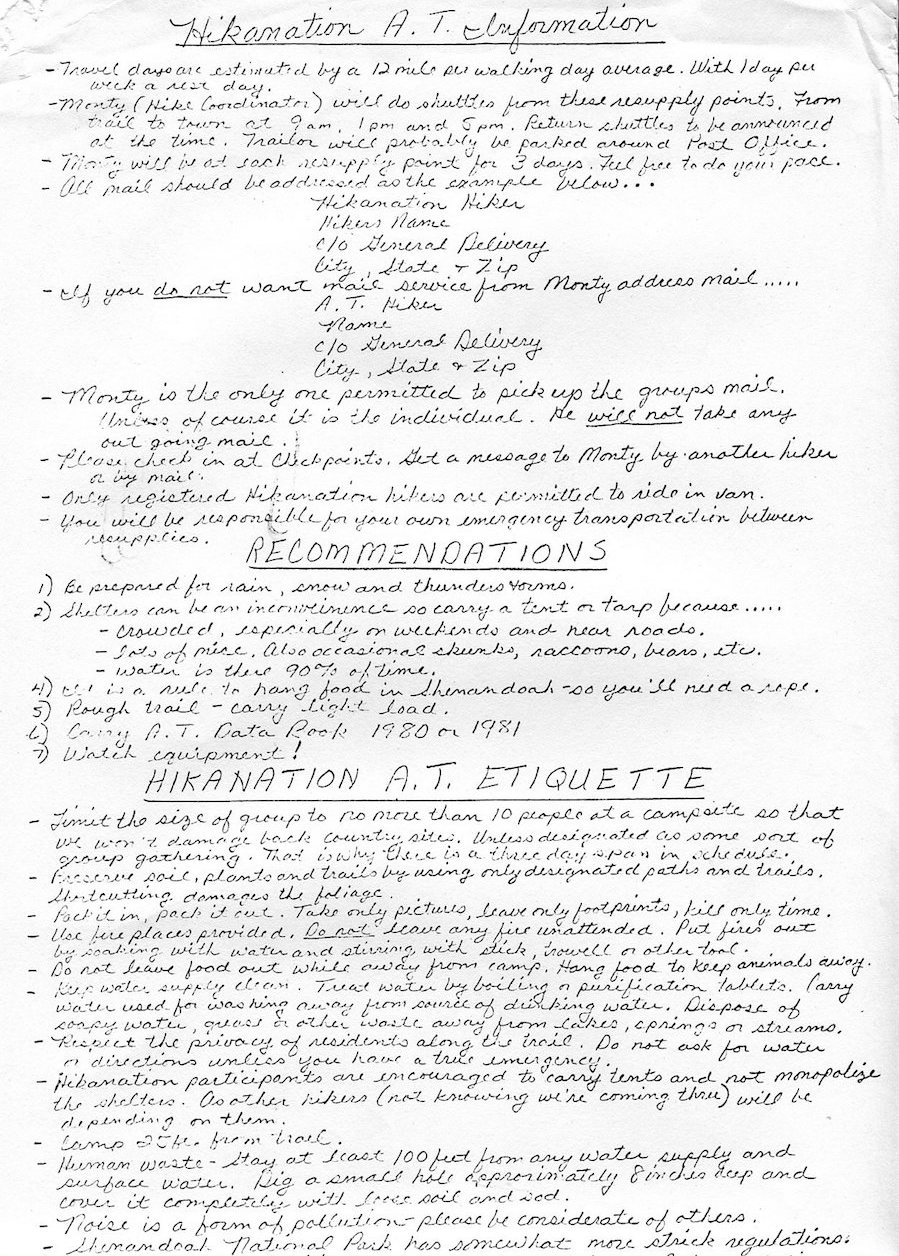 Hikanation A. T. Information
- Travel days are estimated by a 12 mile per walking day average. With 1 day per
week a rest day.
- Monty (Hike Coordinator) will do shuttles from these resupply points. From
trail to town at 9am, 1pm and 5pm. Return shuttles to be announced
at the time. Trailor will probably be parked around Post Office.
- Monty will be at each resupply point for 3 days. Feel free to do your pace.
- All mail should be addressed as the example below...
Hikanation Hiker
Hikers Name
c/o General Delivery
City, State + Zip
- If you do not want mail service from Monty address mail.....
A. T. Hiker
Name
c/o General Delivery
City, State + Zip
- Monty is the only one permitted to pick up the groups mail.
Unless of course it is the individual. He will not take any
out going mail.
- Please check in at Checkpoints. Get a message to Monty by another hiker
or by mail.
- Only registered Hikanation hikers are permitted to ride in van.
- You will be responsible for your own emergency transportation between
resupplies.
RECOMMENDATIONS
1) Be prepared for rain, snow and thunderstorms.
2) Shelters can be an inconveinence so carry a tent or tarp because.....
- crowded, especially on weekends and near roads.
- lots of mice. Also occasional skunks, raccoons, bears, etc.
- water is there 90% of time.
4) It is a rule to hang food in Shenandoah - so you'll need a rope.
5) Rough trail - carry light load.
6) Carry A.T. Data Book 1980 or 1981
7) Watch equipment!
HIKANATION A.T. ETIQUETTE
- Limit the size of group to no more than 10 people at a campsite so that
we won't damage back country sites. Unless designated as some sort of
group gathering. That is why there is a three day span in schedule.
- Preserve soil, plants and trails by using only designated paths and trails.
Shortcutting damages the foliage.
- Pack it in, pack it out. Take only pictures, leave only footprints, kill only time.
- Use fire places provided. Do not leave any fire unattended. Put fires out
by soaking with water and stiring with stick, trowell or other tool.
- Do not leave food out while away from camp. Hang food to keep animals away.
- Keep water supply clean. Treat water by boiling or purification tablets. Carry
water used for washing away from source of drinking water. Dispose of
soapy water, grease or other waste away from lakes, springs or streams.
- Respect the privacy of residents along the trail. Do not ask for water
or directions unless you have a true emergency.
- Hikanation participants are encouraged to carry tents and not monopolize
the shelters. As other hikers (not knowing we're coming thru) will be
depending on them.
- Camp 25 ft. from trail.
- Human waste - Stay at least 100 feet from any water supply and
surface water. Dig a small hole approximately 8 inches deep and
cover it completely with loose soil and sod.
- Noise is a form of pollution - please be considerate of others.
- Shenandoah National Park has somewhat more strick regulations: